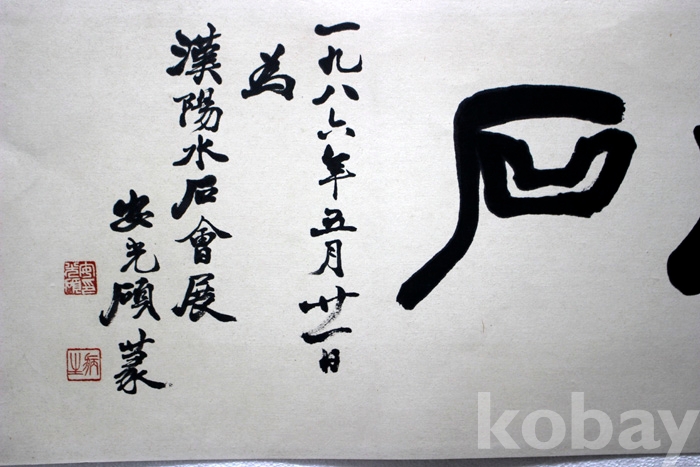 石
一九八六年五月廿一日
為
漢陽水石會展
安光碩篆
kobay